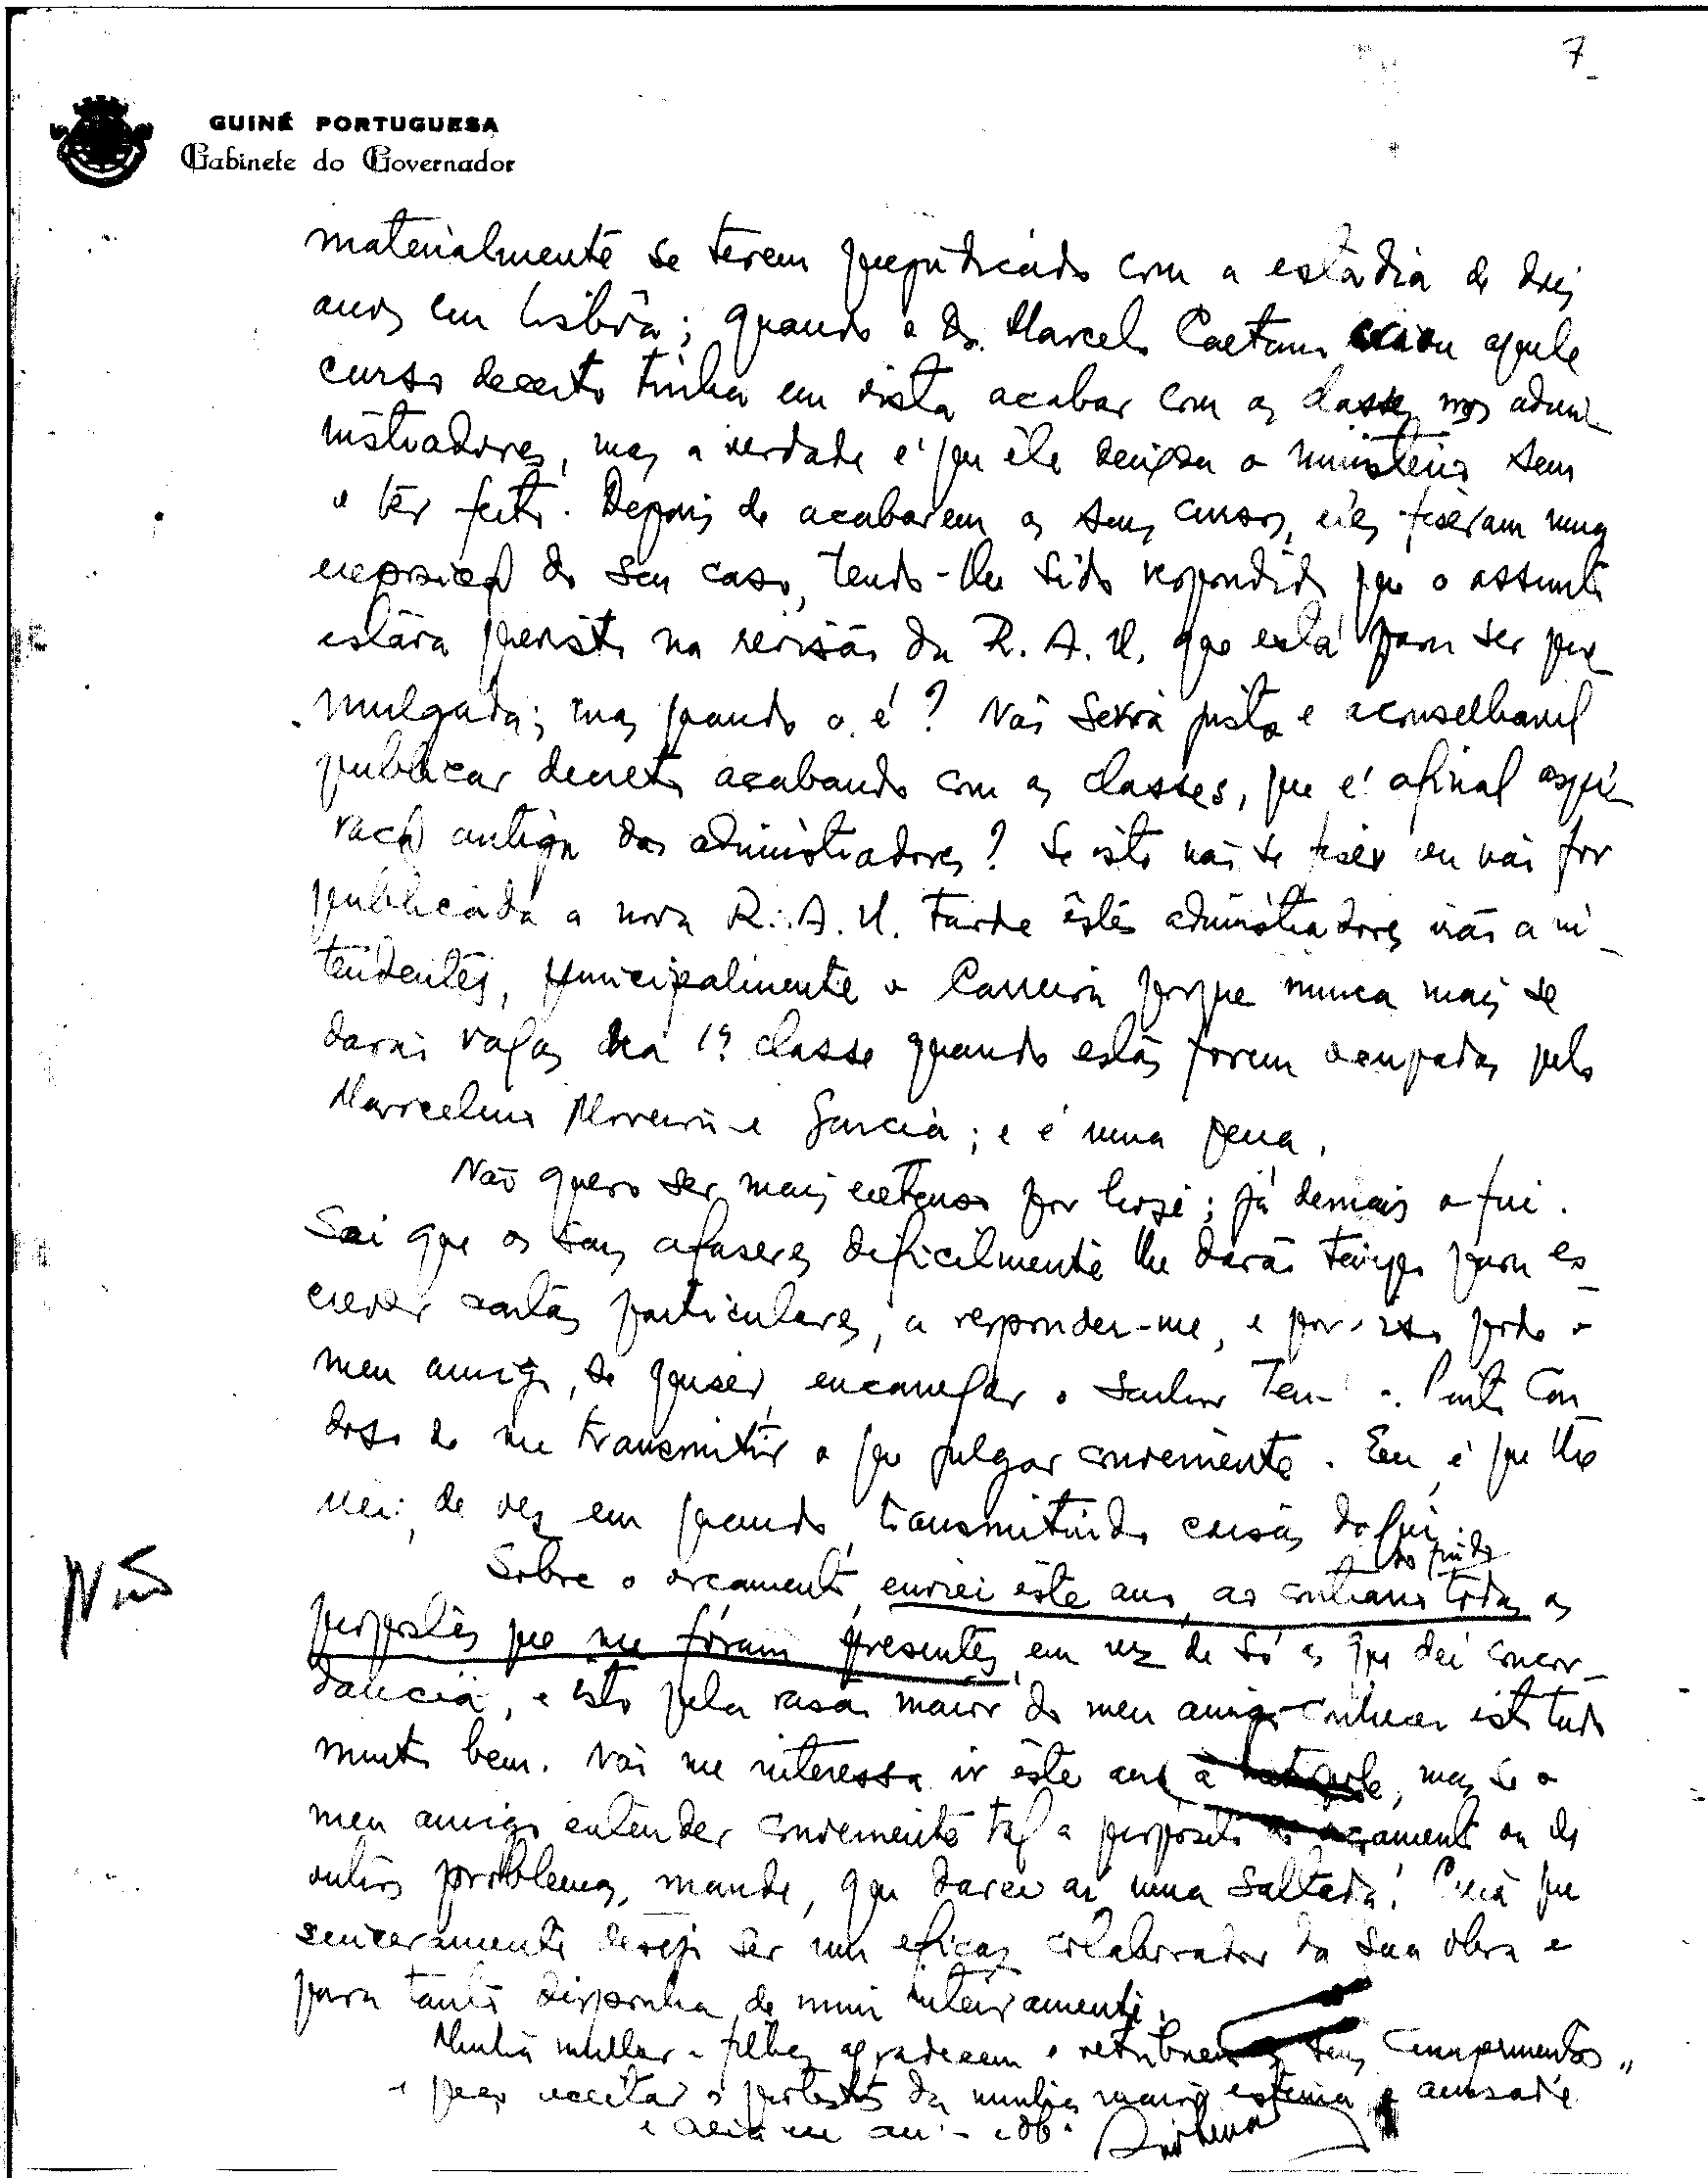 7
GUINÉ PORTUGUESA
Gabinete do Governador
materialmente se terem prejudicado com a estadia de dois
anos em Lisbôa; quando o Dr. Marcelo Caetano criou aquele
curso decerto tinha em vista acabar com as classes nos admi-
nistradores, mas a verdade é que êle deixou o ministério sem
o ter feito. Depois de acabarem os seus cursos, eles fizeram uma
exposição do seu caso, tendo-lhe sido respondido que o assunto
estava previsto na revisão da R. A. U. que está para ser pro-
mulgada; mas quando o é? Não seria justo e aconselhavel
publicar decreto acabando com as classes, que é afinal aspi-
ração antiga dos administradores? Se isto não se fizer ou não for
publicada a nova R. A. U. tarde êstes administradores irão a in-
tendentes, principalmente o Carreira porque nunca mais se
darão vagas na 1ª classe quando estas forem ocupadas pelo
Marcelino Moreira e Garcia; e é uma pena.
Não quero ser mais extenso por hoje; já demais o fui.
Sei que os seus afaseres dificilmente lhe darão tempo para es-
crever cartas particulares, a responder-me, e por isso pode o
meu amigo, se quiser, encarregar o Senhor Ten. Pinto Car
doso de me transmitir o que julgar conveniente. Eu é que lhe
irei, de vez em quando, transmitindo coisas daqui.
Não
Sobre o orçamento, enviei êste ano, ao contrario todas as
propostas que me fóram presentes, em vez de só as que dei concor-
dancia, e isto pela rasão maior do meu amigo conhecer isto tudo
muito bem. Não me interessa ir êste ano à, mas se o
meu amigo entender conveniente tal a proposito do orçamento ou de
outros problemas, mande, que darei aí uma saltada! Creia que
sinceramente desejo ser um eficaz colaborador da sua obra e
para tanto disponha de mim inteiramente.
Minha mulher e filhas agradecem e retribuem os seus cumprimentos
e peço aceitar os protestos da minha maior estima e amisade
e creia-me